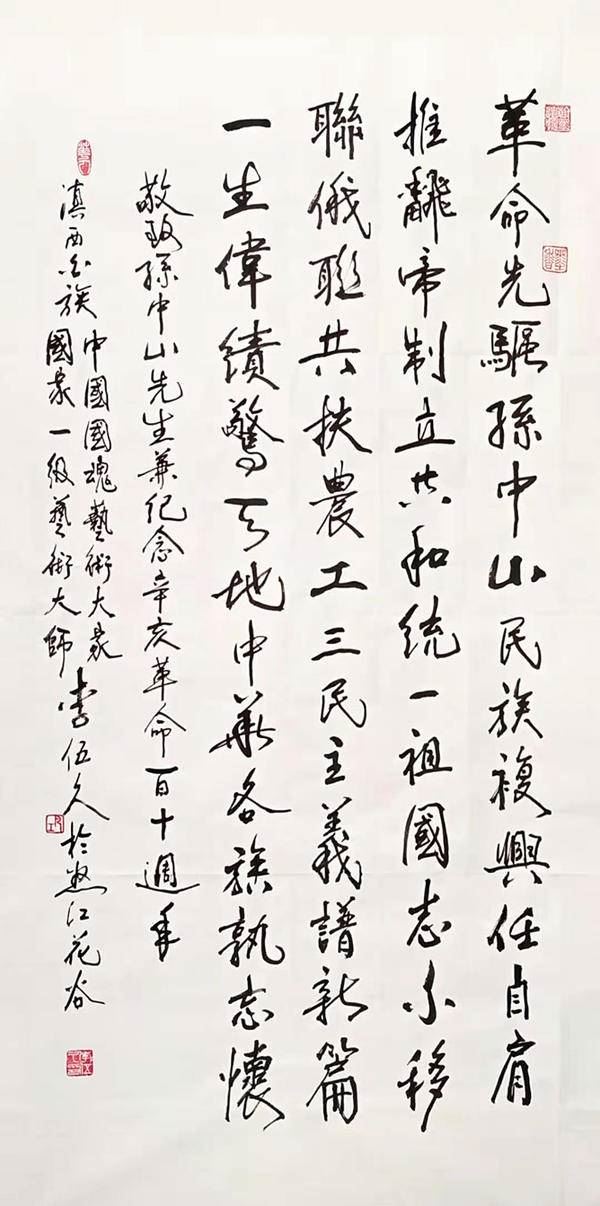 革命先驅孫中山民族複興任自肩
推翻帝制立共和統一祖國志不移
聯俄聯共扶農工三民主義譜新篇
一生偉績驚天地中華各族孰忘懷
敬致孫中山先生兼紀念辛亥革命一百十週年
滇西白族
中國國魂藝術大家
國家一級藝術大師
李伍久於怒江花谷